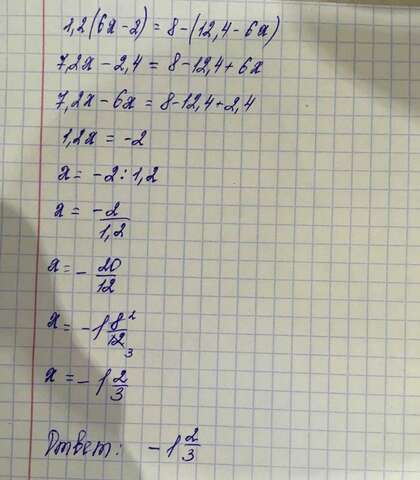 1,2(6x-2) = 8-(12,4-6x)
7,2x-2,4 = 8-12,4+6x
7,2x-6x = 8-12,4+2,4
1,2x = -2
x = -2:1,2
x = -2/1,2
x = -20/12
x = -1 8²/12₃
x = -1 2/3
Ответ: -1 2/3